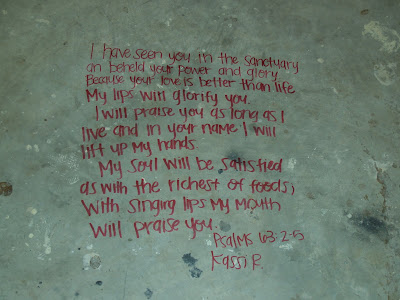 I have seen you in the sanctuary
an beheld your power and glory
Because your love is better than life
My lips will glorify you.
I will praise you as long as I
live and in your name I will
lift up my hands.
My soul will be satisfied
as with the richest of foods;
with singing lips my mouth
will praise you.
Psalms 63:2-5
Kassi R.